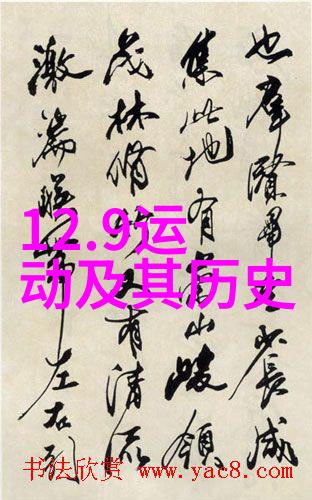 也群賢畢至少長咸
集此地有崇山峻領
茂林脩竹又有清流
激湍暎帶左右引
12.9运
动及其历史
书法欣赏 www.yac8.com